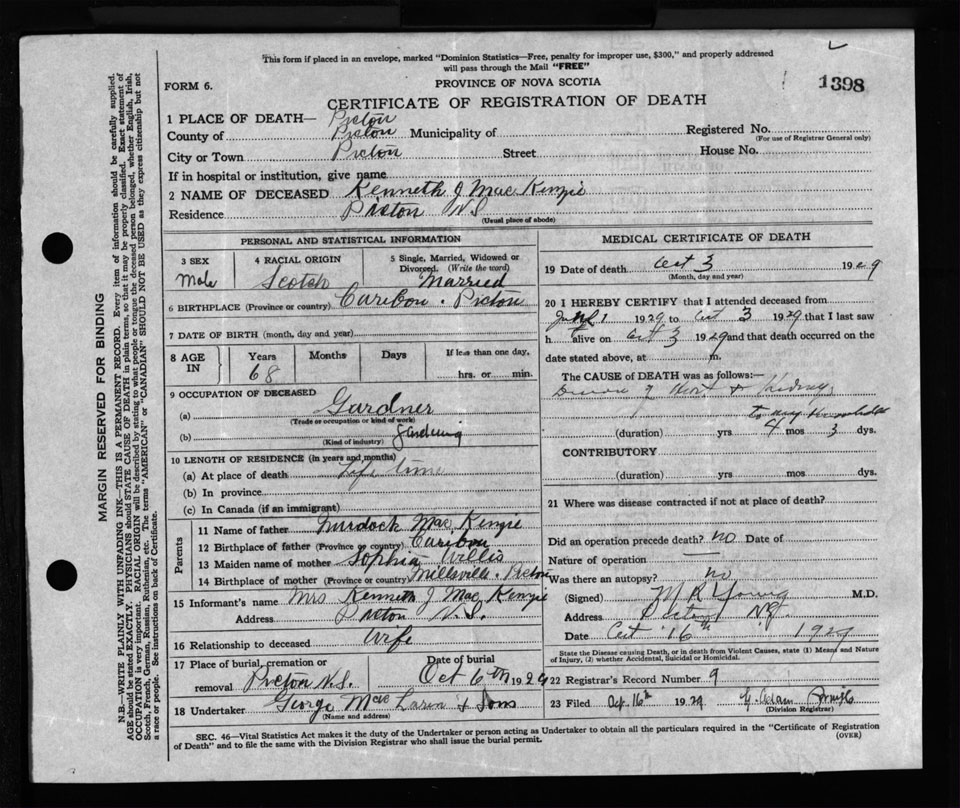 This form if placed in an envelope, marked "Dominion Statistics—Free, penalty for improper use, $300," and properly addressed
will pass through the Mail "FREE"
FORM 6.
PROVINCE OF NOVA SCOTIA
1398
CERTIFICATE OF REGISTRATION OF DEATH
1 PLACE OF DEATH— Pictou
County of Pictou Municipality of Registered No.
(For use of Registrar General only)
City or Town Pictou Street House No.
If in hospital or institution, give name
2 NAME OF DECEASED Kenneth J MacKenzie
Residence Pictou N.S
(Usual place of abode)
PERSONAL AND STATISTICAL INFORMATION
3 SEX
Male
4 RACIAL ORIGIN
Scotch
5 Single, Married, Widowed or
Divorced. (Write the word)
Married
6 BIRTHPLACE (Province or country) Caribou. Pictou
7 DATE OF BIRTH (month, day and year)
8 AGE IN
Years Months Days If less than one day,
68 hrs. or min.
9 OCCUPATION OF DECEASED
(a) Gardner
(Trade or occupation or kind of work)
(b) Gardening
(Kind of industry)
10 LENGTH OF RESIDENCE (in years and months)
(a) At place of death Life time
(b) In province
(c) In Canada (if an immigrant)
Parents
11 Name of father Murdock MacKenzie
12 Birthplace of father (Province or country) Caribou
13 Maiden name of mother Sophia Willis
14 Birthplace of mother (Province or country) Millsville. Pictou
15 Informant's name Mrs Kenneth J MacKenzie
Address Pictou N.S.
16 Relationship to deceased Wife
17 Place of burial, cremation or
removal Pictou N.S.
Date of burial
Oct 6th 1929
18 Undertaker George MacLaren & Sons
(Name and address)
MEDICAL CERTIFICATE OF DEATH
19 Date of death Oct 3 1929
(Month, day and year)
20 I HEREBY CERTIFY that I attended deceased from
1 1929 to Oct 3 1929 that I last saw
h alive on Oct 3 1929 and that death occurred on the
date stated above, at m.
The CAUSE of DEATH was as follows:—
of Heart & Kidneys
(duration) yrs 4 mos 3 dys.
CONTRIBUTORY
(duration) yrs mos dys.
21 Where was disease contracted if not at place of death?
Did an operation precede death? no Date of
Nature of operation —
Was there an autopsy? no
(Signed) M R Young M.D.
Address Pictou NS
Date Oct 16th 1929
State the Disease causing Death, or in death from Violent Causes, state (1) Means and Nature
of Injury, (2) whether Accidental, Suicidal or Homicidal.
22 Registrar's Record Number 9
23 Filed Oct 16th 1929
(Division Registrar)
SEC. 46—Vital Statistics Act makes it the duty of the Undertaker or person acting as Undertaker to obtain all the particulars required in the "Certificate of Registration
of Death" and to file the same with the Division Registrar who shall issue the burial permit.
(OVER)
MARGIN RESERVED FOR BINDING
N.B.—WRITE PLAINLY WITH UNFADING INK—THIS IS A PERMANENT RECORD. Every item of information should be carefully supplied.
AGE should be stated EXACTLY. PHYSICIANS should STATE CAUSE OF DEATH in plain terms, so that it may be properly classified. Exact statement of
OCCUPATION is very important. RACIAL ORIGIN will be described by stating to what people or tongue the deceased person belonged, whether English, Irish,
Scotch, French, German, Russian, Ruthenian, etc. The terms "AMERICAN" or "CANADIAN" SHOULD NOT BE USED as they express citizenship but not
a race or people. See instructions on back of Certificate.